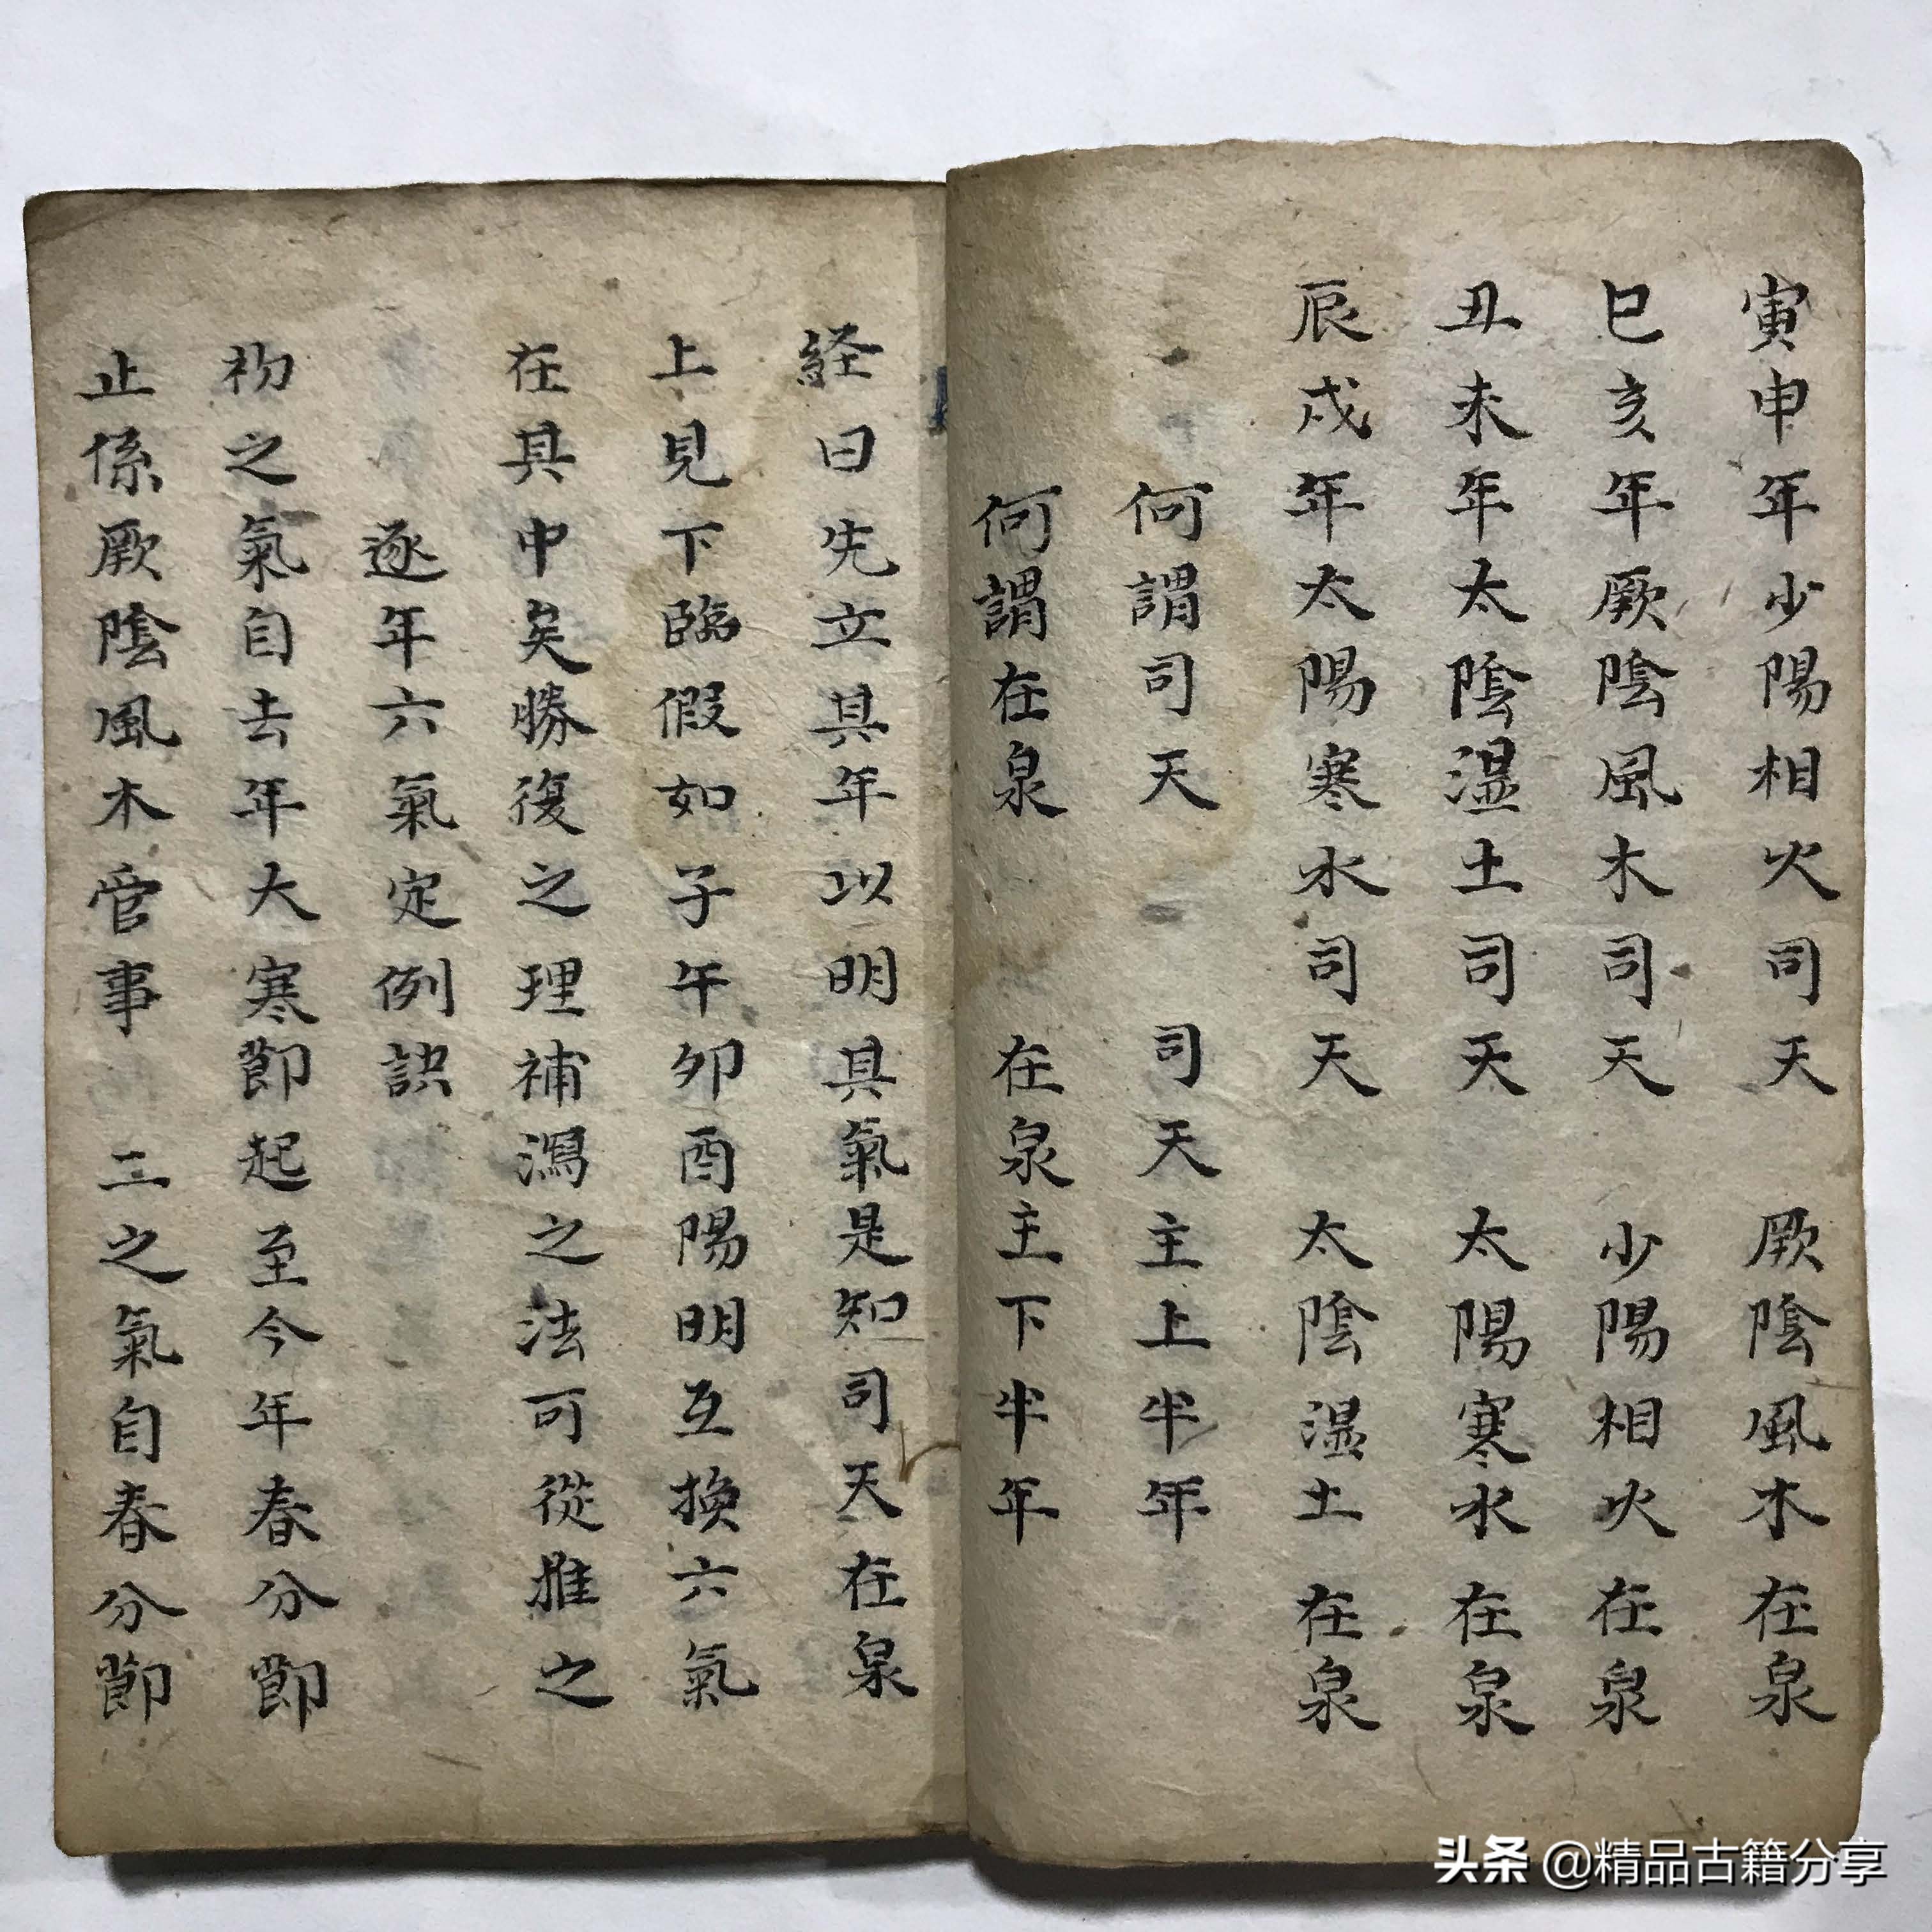 寅申年少陽相火司天　厥陰風木在泉
巳亥年厥陰風木司天　少陽相火在泉
丑未年太陰湿土司天　太陽寒水在泉
辰戌年太陽寒水司天　太陰湿土在泉
何謂司天　司天主上半年
何謂在泉　在泉主下半年
経曰先立其年以明其氣是知司天在泉
上見下臨假如子午卯酉陽明互換六氣
在其中矣勝復之理補瀉之法可從推之
逐年六氣定例訣
初之氣自去年大寒節起至今年春分節
止係厥陰風木管事　二之氣自春分節
头条 @精品古籍分享